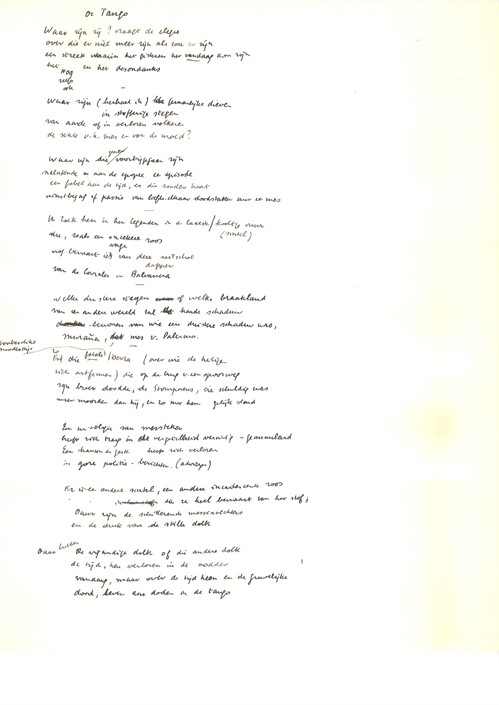 De Tango
Waar zijn zij? vraagt de elegie
over die er niet meer zijn als zou er zijn
een streek waarin het gisteren het vandaag kon zijn
het
Nog
ook
en het desondanks
Waar zijn (herhaal ik)
in stoffige stegen
van aarde of in verloren
de sekte v.h. mes en van de moed?
Waar zijn die voorbijgegaan zijn
aan de epopee een episode
een fabel aan de tijd, en die zonder haat
winstbejag of passie van liefde elkaar doodstaken met een mes
Ik zoek hen in hun legenden in de laatste / kooltje vuur
(sintel)
die, zoals een onzekere roos
nog bewaart iets van deze
dappere
van de Corrales en Balvanera
Welke duistere stegen of welk braakland
van een andere wereld zal harde schaduw
bewonen van wie een duistere schaduw was,
Muraña, mes v. Palermo.
En die fatale Iberra (over wie de heiligen
zich ontfermen) die op de brug v. een spoorweg
zijn broer doodde, de Stompneus, die schuldig was
meer moorden dan hij, en zo met hem gelijk stond
Een mythologie van messteken
heeft zich traag in de vergetelheid
Een chanson de geste heeft zich verloren
in gore politie-berichten.
Er is een andere sintel, een andere roos
die ze heel bewaart van hun stof;
Daar zijn de schitterende messenvechters
en de druk van de stille dolk
Daar
De vijandige dolk of die andere dolk
de tijd, hen verloren in de modder
vandaag, maar over de tijd heen en de gruwelijke
dood, leven deze doden in de tango